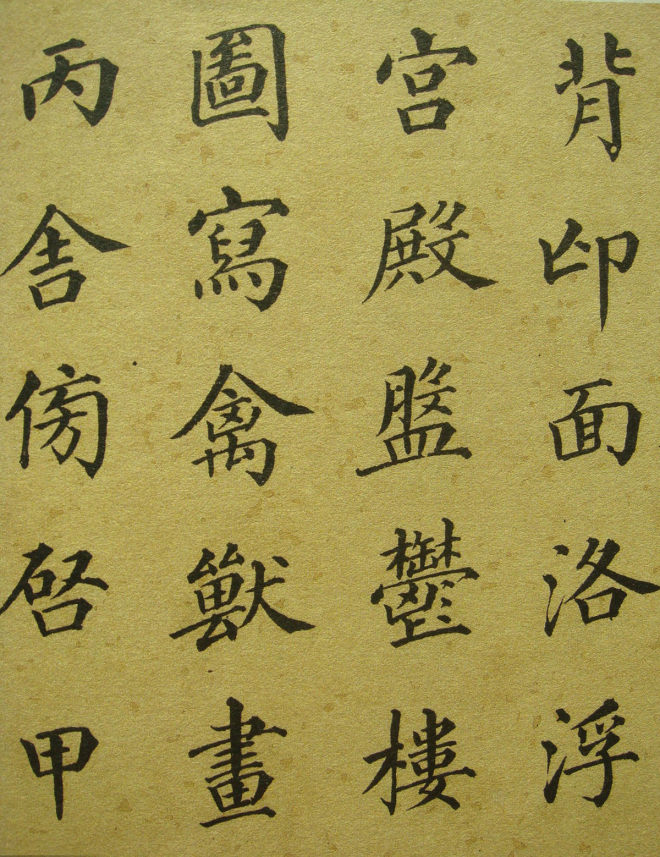 背邙面洛浮
宮殿盤鬱樓
圖寫禽獸畫
丙舍傍啓甲